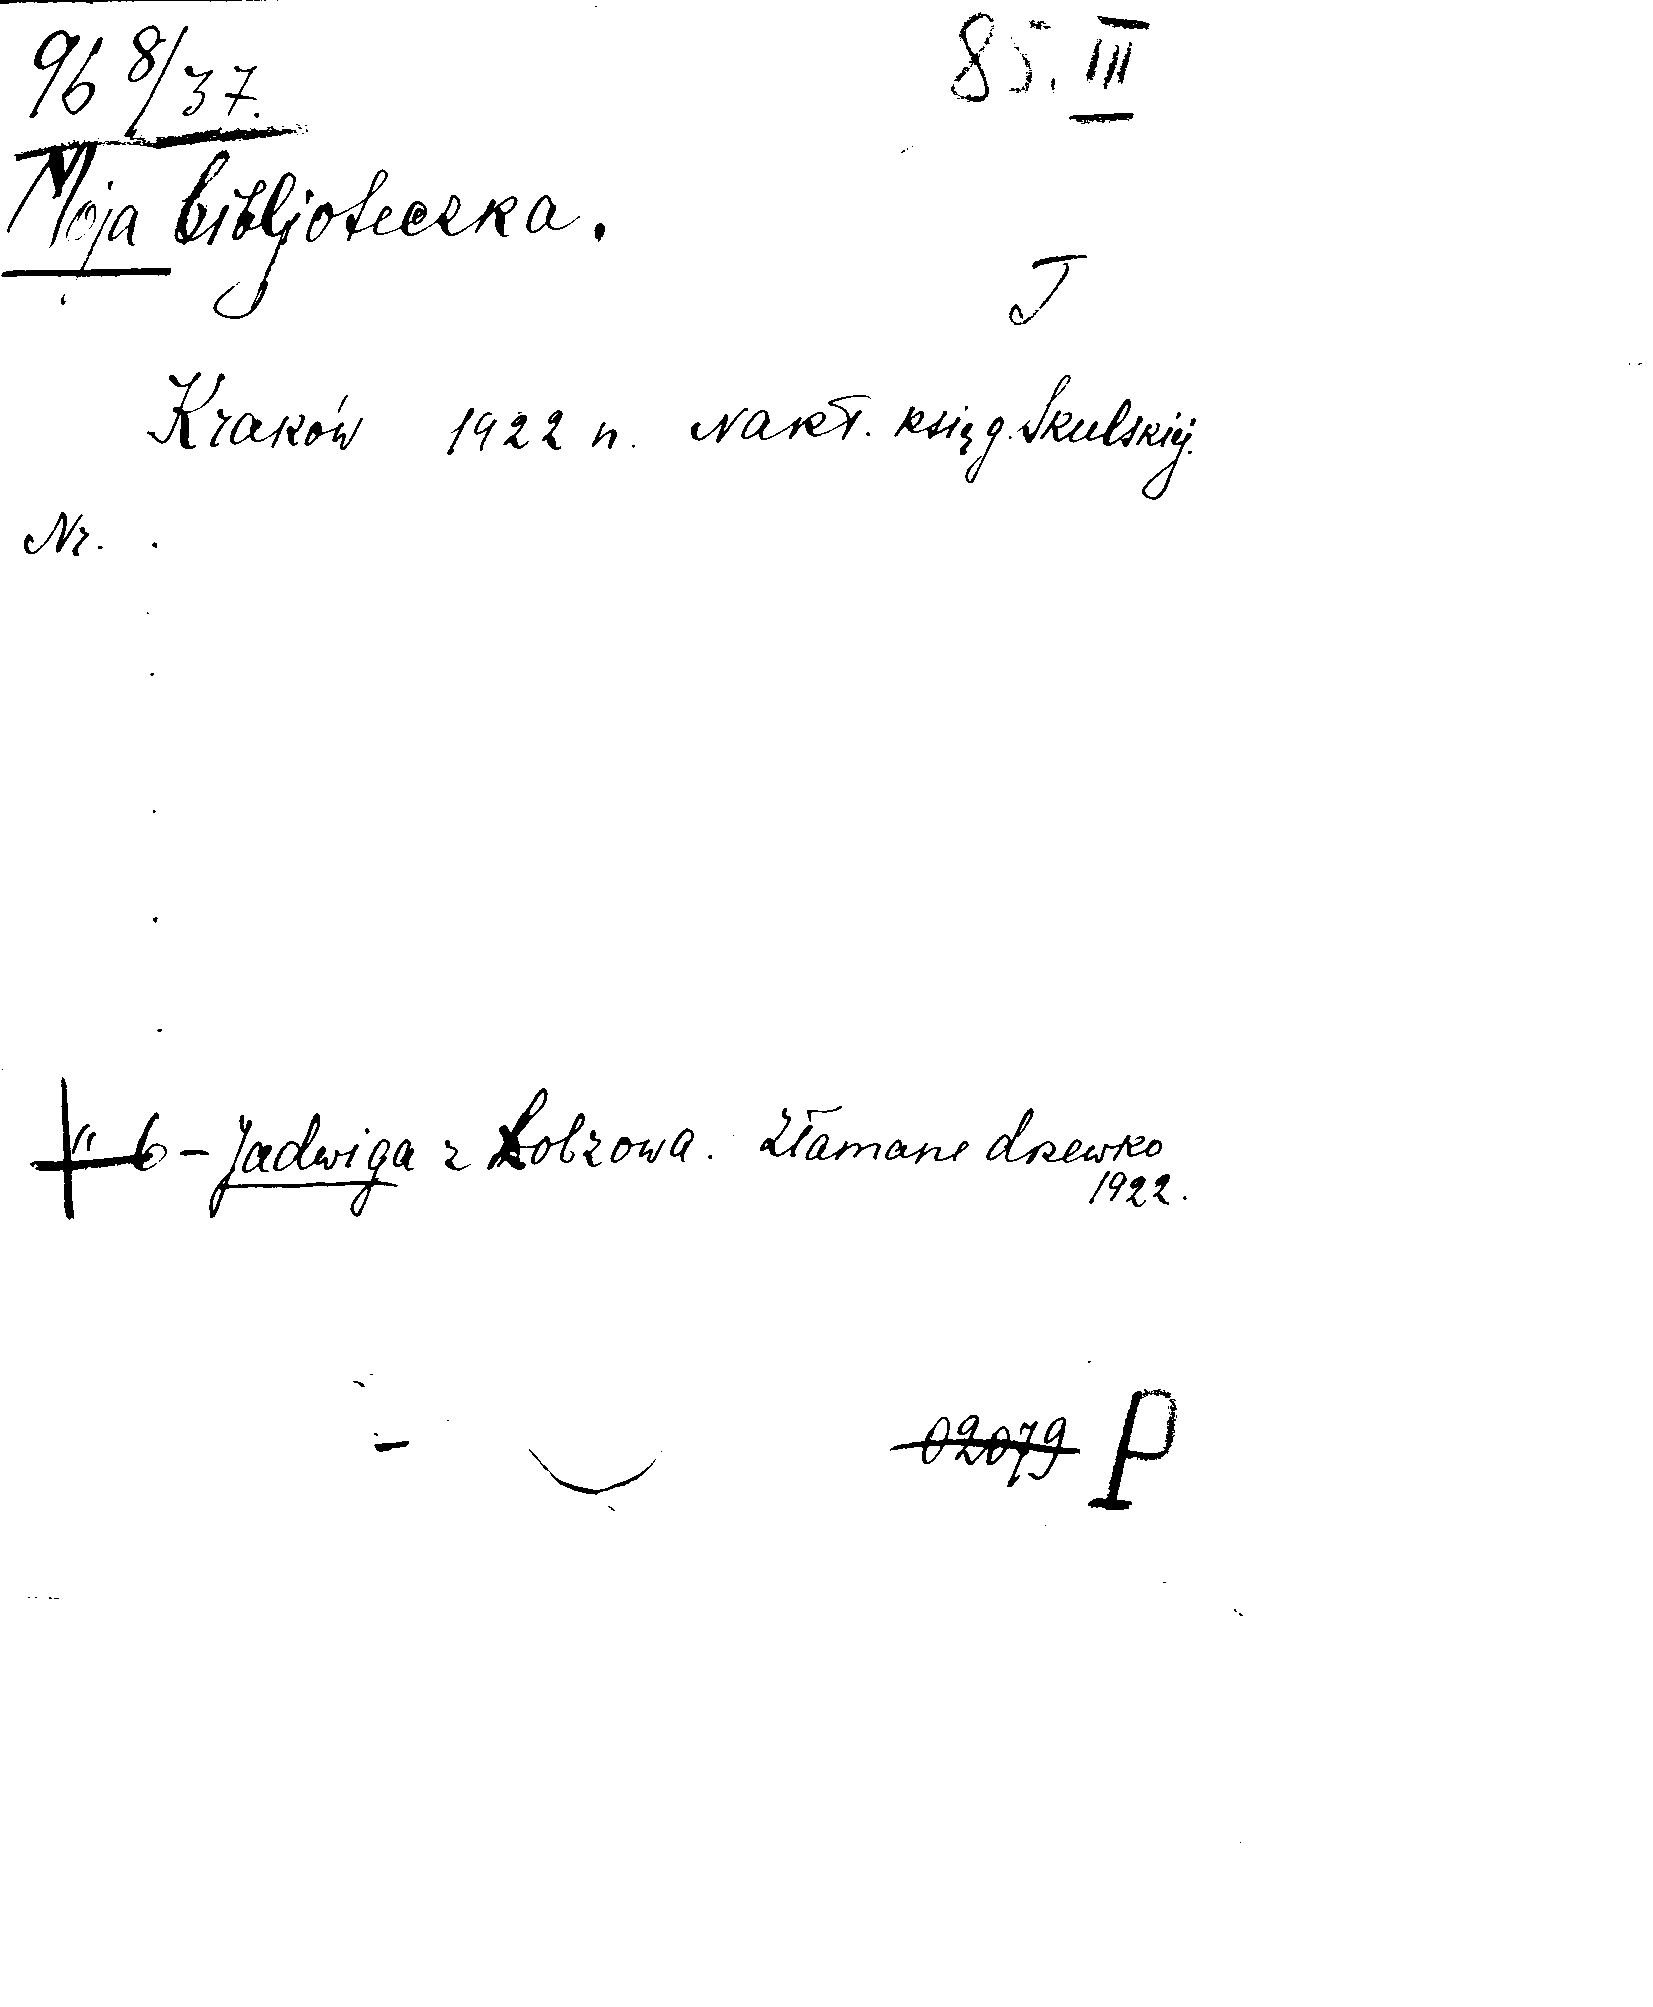 968/37.
85. III
Moja bibljoteczka.
J
Kraków 1922 n. Nakł. księg. Skulskiej.
Nr.
" 6 - Jadwiga z Łobzowa. Złamane drzewko
1922.
02079 P